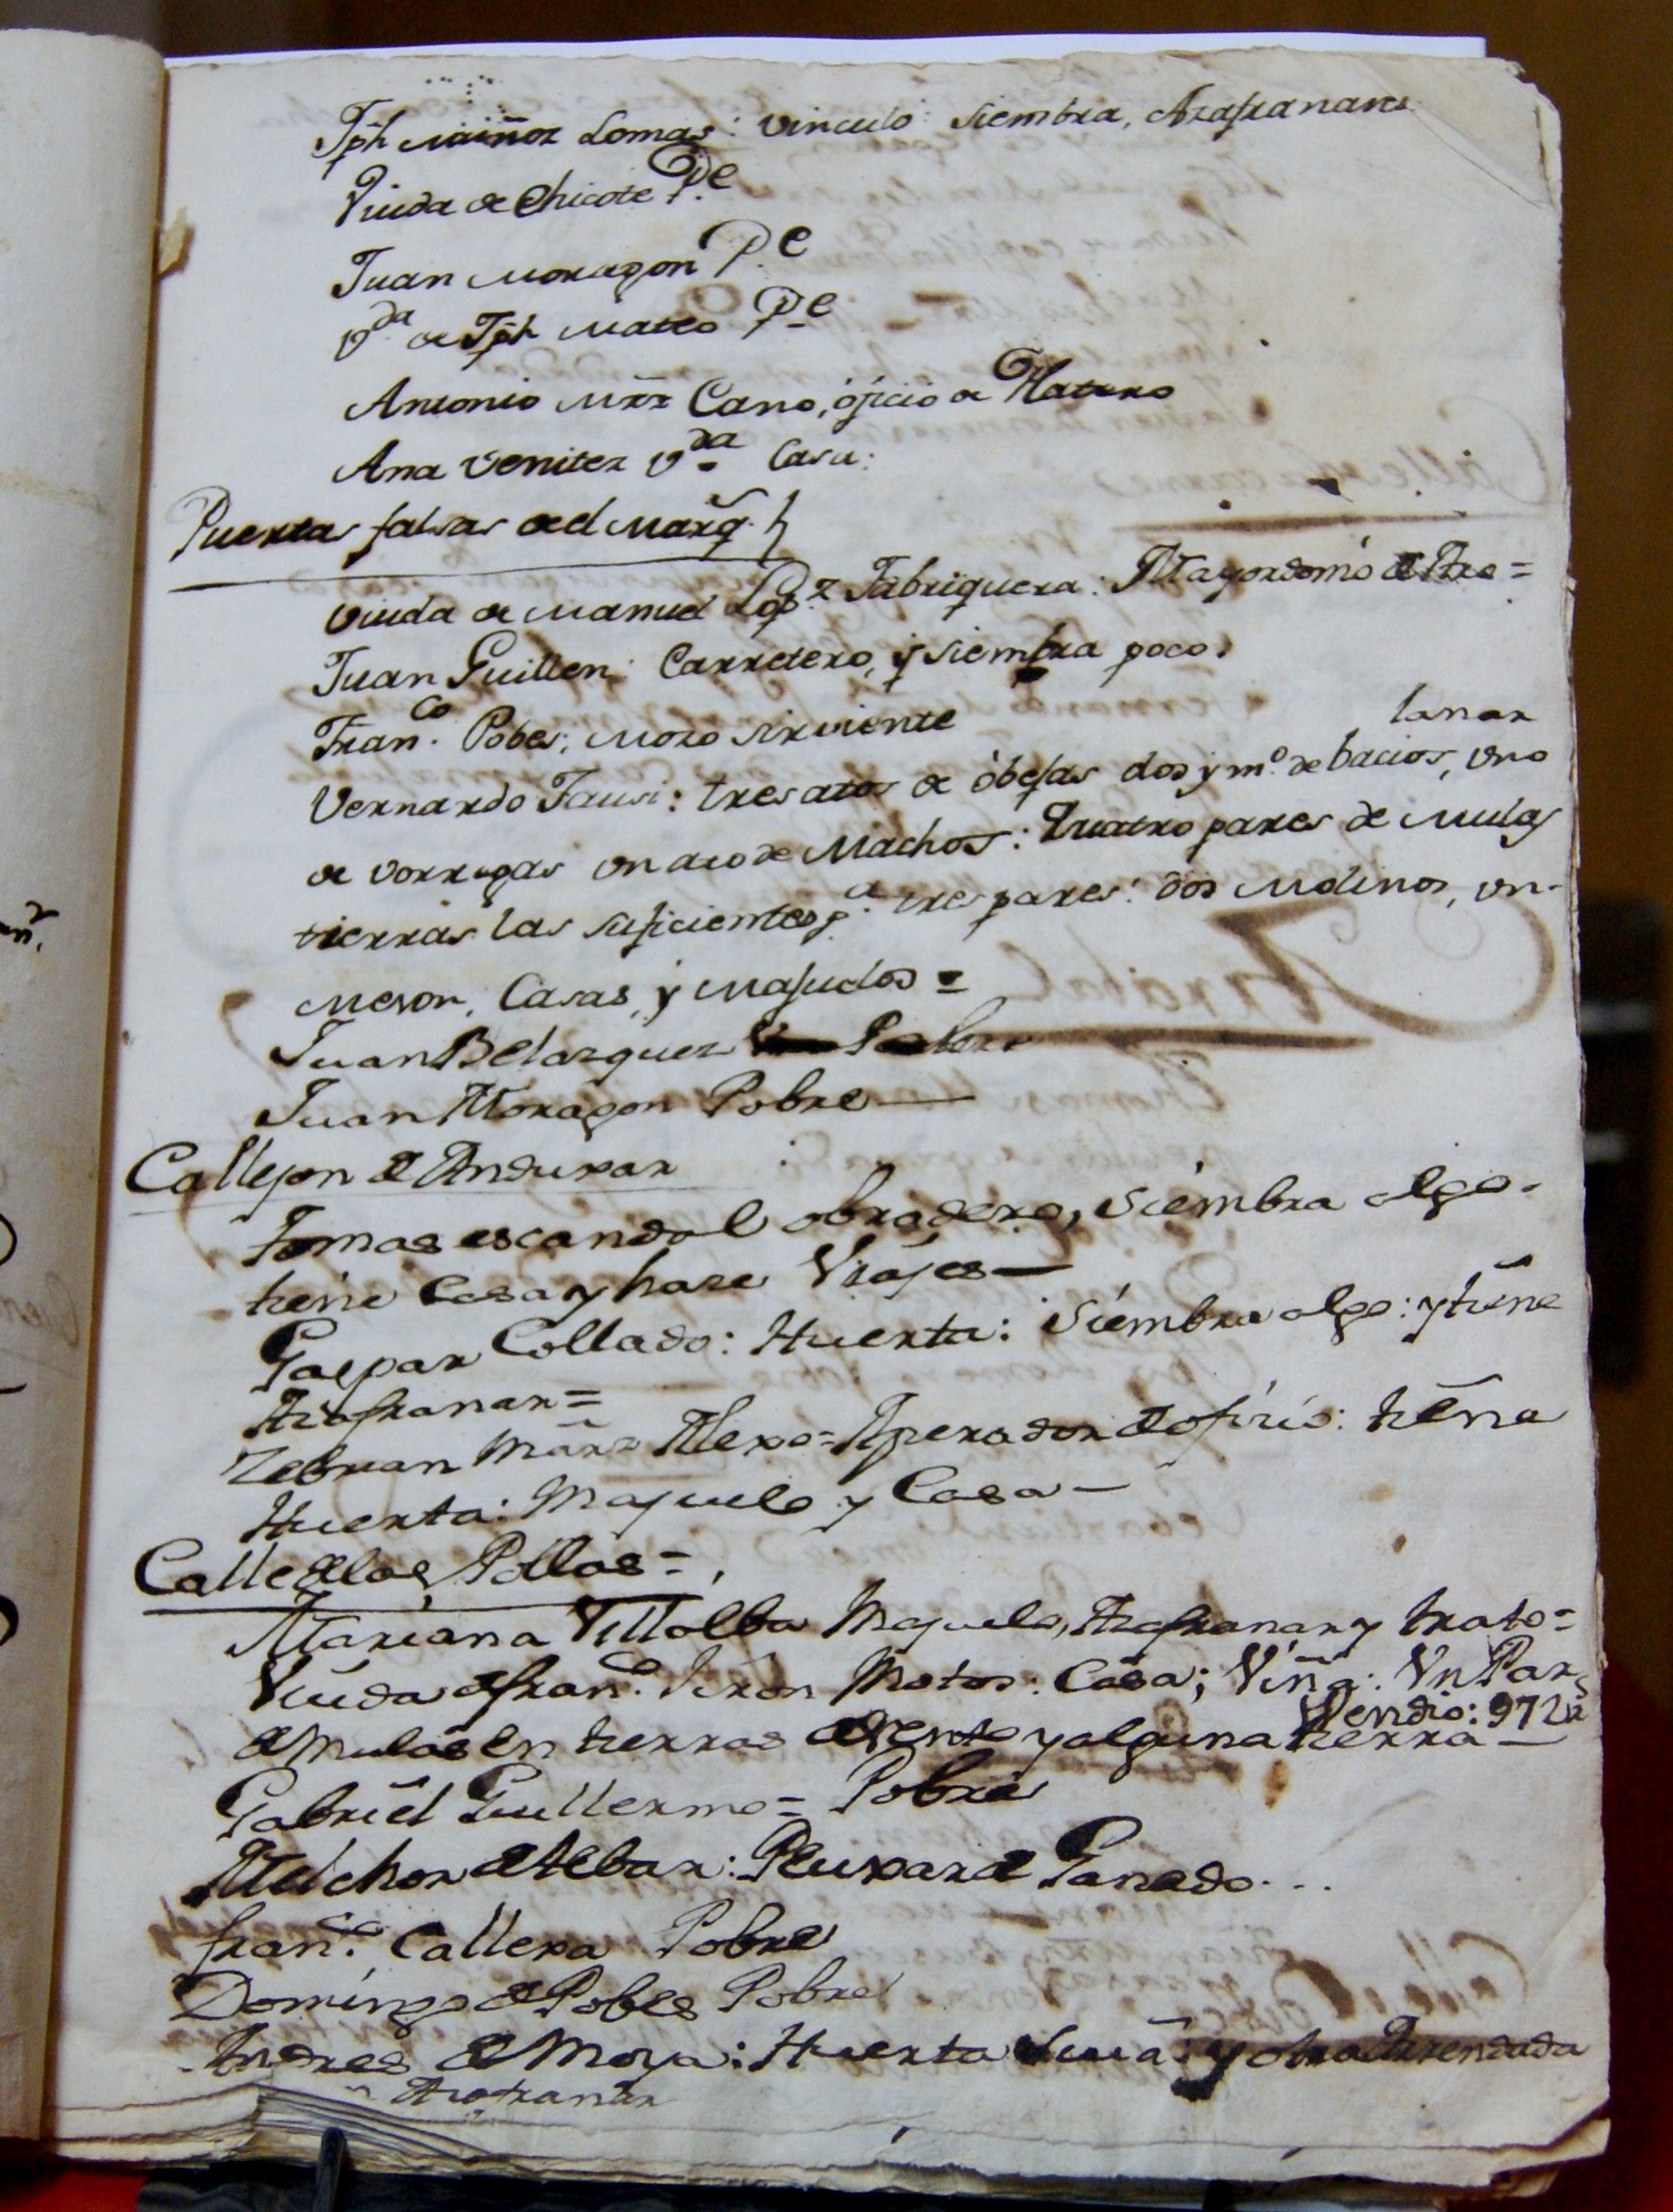 Jph Muñoz Lomas: vinculo: siembra, Azafranares
Viuda de Chicote P.e
Juan Moragon P.e
V.da de Jph Mateo P.e
Antonio Mrz Cano, óficio de Platero
Ana Venitez V.da Casa:
Puertas falsas del Marq.
Viuda de Manuel Lop.z Fabriquera: Mayordomo de
Juan Guillen: Carretero, y siembra poco.
Fran.co Pobes: Mozo sirviente
lanar
Vernardo Jausi: tres atos de óbejas dos y m.o de bacios, uno
de vorregas un ato de Machos: Quatro pares de mulas
tierras las suficientes p.a tres pares: dos Molinos, un-
Meson, Casas, y Majuelos =
Juan Belazquez Pobre
Juan Moragon Pobre —
Callejon de Anduxar
Tomas escandel obrajero, siembra algo.
tiene Casa y haze Viajes —
Gaspar Collado: Huerta: siembra algo: y tiene
Azafranar =
Zebrian Marz Alexo = Aperador de oficio: tiene
Huerta: Majuelo y Casa —
Calle de los Pollos =
Mariana Villalba Majuelo, Azafranar y trato =
Viuda de fran.co Jiron Motos: Casa; Viña: Un Par
Vendio: 972
de mulas En tierras de Rento y alguna tierra —
Gabriel Guillermo = Pobre
Melchor de Tebar: Peuxar de Ganado...
fran.co Callexa Pobre
Domingo de Pobes Pobre
Andres de Moya: Huerta Suia: y otra Arrendada
Azafranar